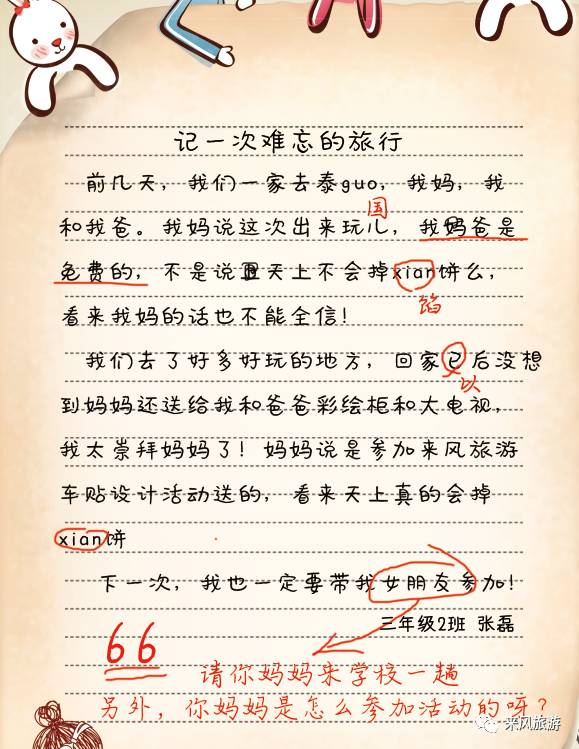 记一次难忘的旅行
前几天，我们一家去泰guo，我妈，我
国
和我爸。我妈说这次出来玩儿，我爸是
免费的，不是说天上不会掉xian饼么，
馅
看来我妈的话也不能全信！
我们去了好多好玩的地方，回家已后没想
以
到妈妈还送给我和爸爸彩绘柜和大电视，
我太崇拜妈妈了！妈妈说是参加来风旅游
车贴设计活动送的，看来天上真的会掉
xian饼
下一次，我也一定要带我女朋友参加！
三年级2班 张磊
66
请你妈妈来学校一趟
另外，你妈妈是怎么参加活动的呀？
来风旅游